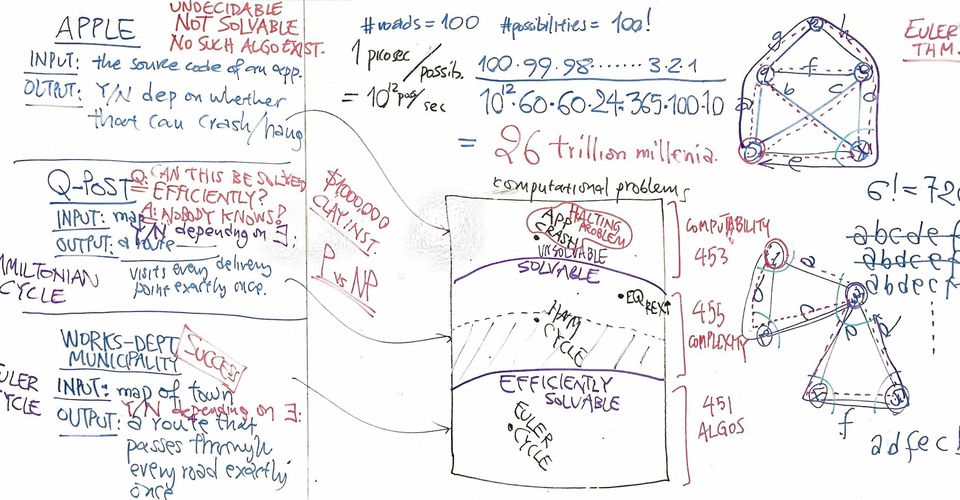 APPLE
UNDECIDABLE
NOT SOLVABLE
NO SUCH ALGO EXIST.
INPUT: the source code of an app.
OUTPUT: Y/N dep on whether
that can crash/hang
Q-POST
Q: CAN THIS BE SOLVED
EFFICIENTLY?
A: NOBODY KNOWS!
INPUT: map
Y/N depending on ∃:
OUTPUT: a route
visits every delivery
point exactly once.
HAMILTONIAN
CYCLE
WORKS-DEPT
MUNICIPALITY
SUCCESS
INPUT: map of town
Y/N depending on ∃:
OUTPUT: a route that
passes through
every road exactly
once
EULER
CYCLE
$1000,000
CLAY INST.
P vs NP
#roads = 100 #possibilities = 100!
1 picosec
/possib.
= 10^12 pos/sec
100·99·98·······3·2·1
10^12·60·60·24·365·100·10
= 26 trillion millenia.
computational problems
HALTING
PROBLEM
APP
CRASH
UNSOLVABLE
SOLVABLE
EQ REX↑
HAM
CYCLE
EFFICIENTLY
SOLVABLE
EULER
CYCLE
COMPUTABILITY
453
455
COMPLEXITY
451
ALGOS
EULER'S
THM.
g
h
f
b
c
a
d
e
6! = 720
abcdef
abdcef
abdecf
1
a
b
c
2
f
adfecb